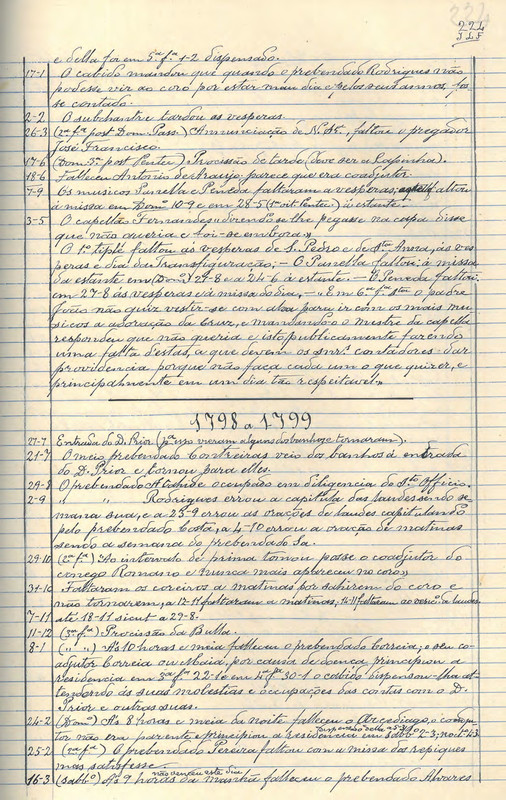 224
e della foi em 5ª fª 1-2 dispensado.
17-1 O cabido mandou que quando o prebendado Rodrigues não
podesse vir ao coro por estar mau dia e pelos seus annos, fos-
se contado.
2-2 O subchantre tardou ás vesperas.
26-3 (2ª fª post Dom. Pass.) Annunciação de N. Srª, faltou o pregador
José Francisco.
17-6 (Dom. 3ª post Pentec.) Procissão de tarde (deve ser a Capinha).
18-6 Falleceu Antonio de Araujo, parece que era coadjutor.
7-9 Os musicos Panella e Peneda faltaram a vesperas, faltou
á missa em Domº 10-9 e em 28-5 (1º oit. Pentec.) á estante.
3-5 O capellão Fernandes "dizendo se lhe pegasse na capa disse
que não queria e foi-se embora."
O 1º tiple faltou ás vesperas de S. Pedro e de Stª Anna, ás ves-
peras e dia da Transfiguração, – O Panella faltou: á missa
da estante em (Domº) 27-8 e a 24-6 á estante. – O Peneda faltou:
em 27-8 ás vesperas e á missa do dia, – "Em 6ª fª Stª o padre
João não quiz vestir-se com alva para ir com os mais mu-
sicos a adoração da Cruz, e mandando-o o mestre da capella
respondeu que não queria e isto publicamente fazendo
uma falta d'estas, a que devem os snrs. contadores dar
providencia porque não faça cada um o que quizer, e
principalmente em um dia tão respeitavel."
1798 a 1799
27-7 Entrada do D. Prior (pª isso vieram alguns dos banhos e tornaram).
21-7 O meio prebendado Contreiras veio dos banhos á entrada
do D. Prior e tornou para elles.
29-8 O prebendado Athaide occupado em diligencia do Stº Officio.
2-9 " " Rodrigues errou a capitula das laudes sendo se-
mana sua, e a 23-9 errou as orações de laudes capitulando
pelo prebendado Costa, a 4-10 errou a oração de matinas
sendo a semana do prebendado Sá.
29-10 (2ª fª) "Ao intervalo de prima tomou posse o coadjutor do
conego Romano e nunca mais appareceu no coro."
31-10 Faltaram os coreiros a matinas por sahirem do coro e
não tornarem, a 12-11 faltaram a matinas, 14-11 faltaram ao de laudes.
7-11 até 18-11 sicut a 29-8.
11-12 (3ª fª) Procissão da Bulla.
8-1 (" ") As 10 horas e meia falleceu o prebendado Correia, e seu co-
adjutor Correia ou Maia, por causa de doença principiou a
residencia em 3ª fª 22-1 e em 4ª fª 30-1 o cabido dispensou-lha at-
tendendo ás suas molestias e occupações das contas com o D.
Prior e outras suas.
24-2 (Domº) As 8 horas e meia da noite falleceu o Arcediago, o coadju-
tor não era parente e principiou a residencia em sabbº 2-3;
25-2 (2ª fª) O prebendado Pereira faltou com a missa dos repiques
mas satisfez.
não venceu este dia
16-3 (sabbº) As 9 horas da manhã falleceu o prebendado Alvares